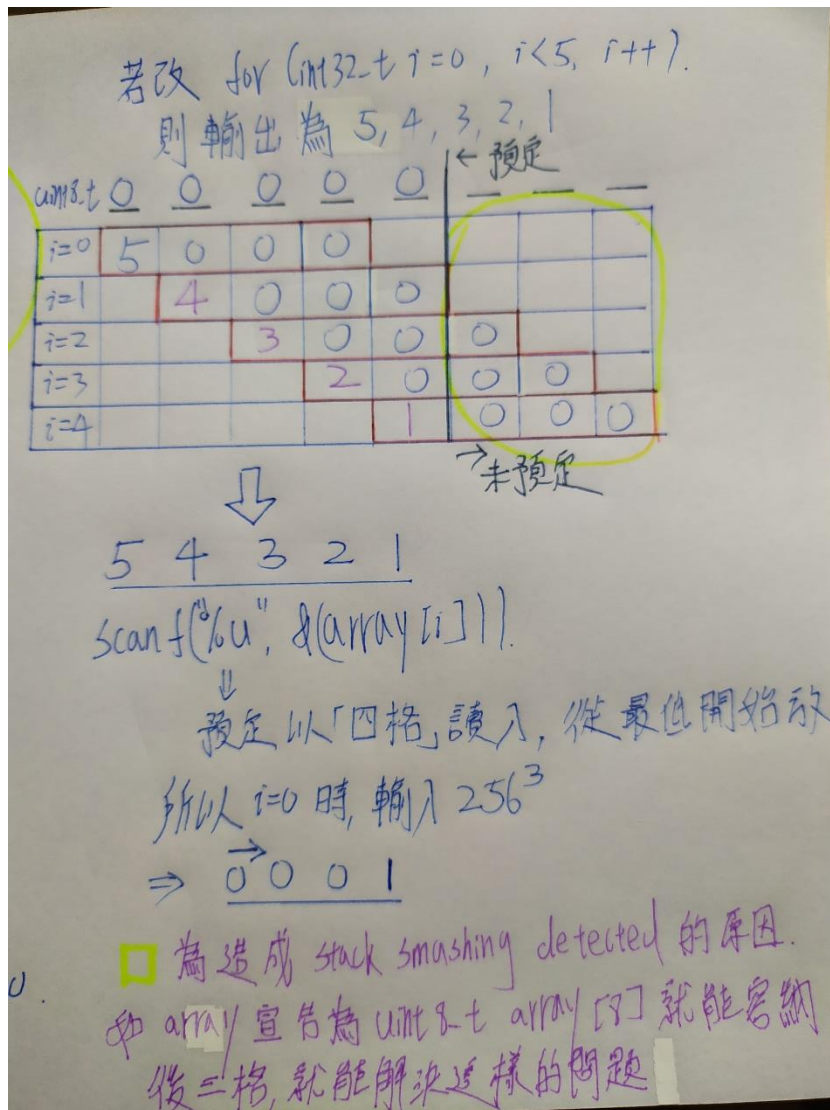 若改 for (int32_t i=0, i<5, i++).
則輸出為 5, 4, 3, 2, 1
← 預定
uint8_t 0 0 0 0 0 _ _ _
i=0 5 0 0 0
i=1 4 0 0 0
i=2 3 0 0 0
i=3 2 0 0 0
i=4 1 0 0 0
→未預定
5 4 3 2 1
scanf("%u", &(array[i])).
⇓
預定以「四格」讀入, 從最低開始放
所以 i=0 時, 輸入 256³
⇒ 0 0 0 1
為造成 stack smashing detected 的原因.
array 宣告為 uint8_t array[8] 就能容納
後三格, 就能解決這樣的問題